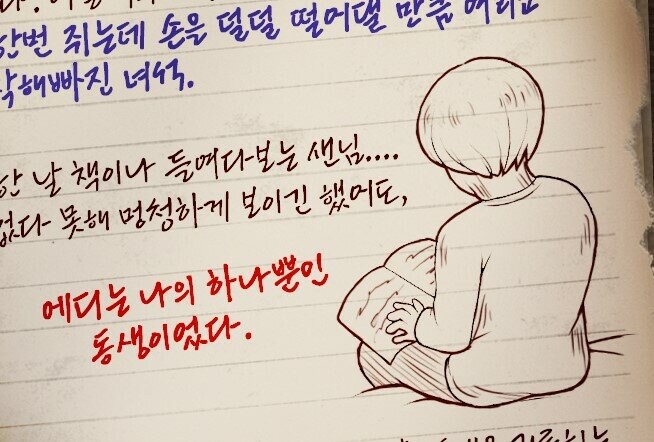 한번 쥐는데 손은 덜덜 떨어댈 만큼 여리고
착해빠진 녀석.
한 날 책이나 들여다보는 샌님....
없다 못해 멍청하게 보이긴 했어도,
에디는 나의 하나뿐인
동생이었다.